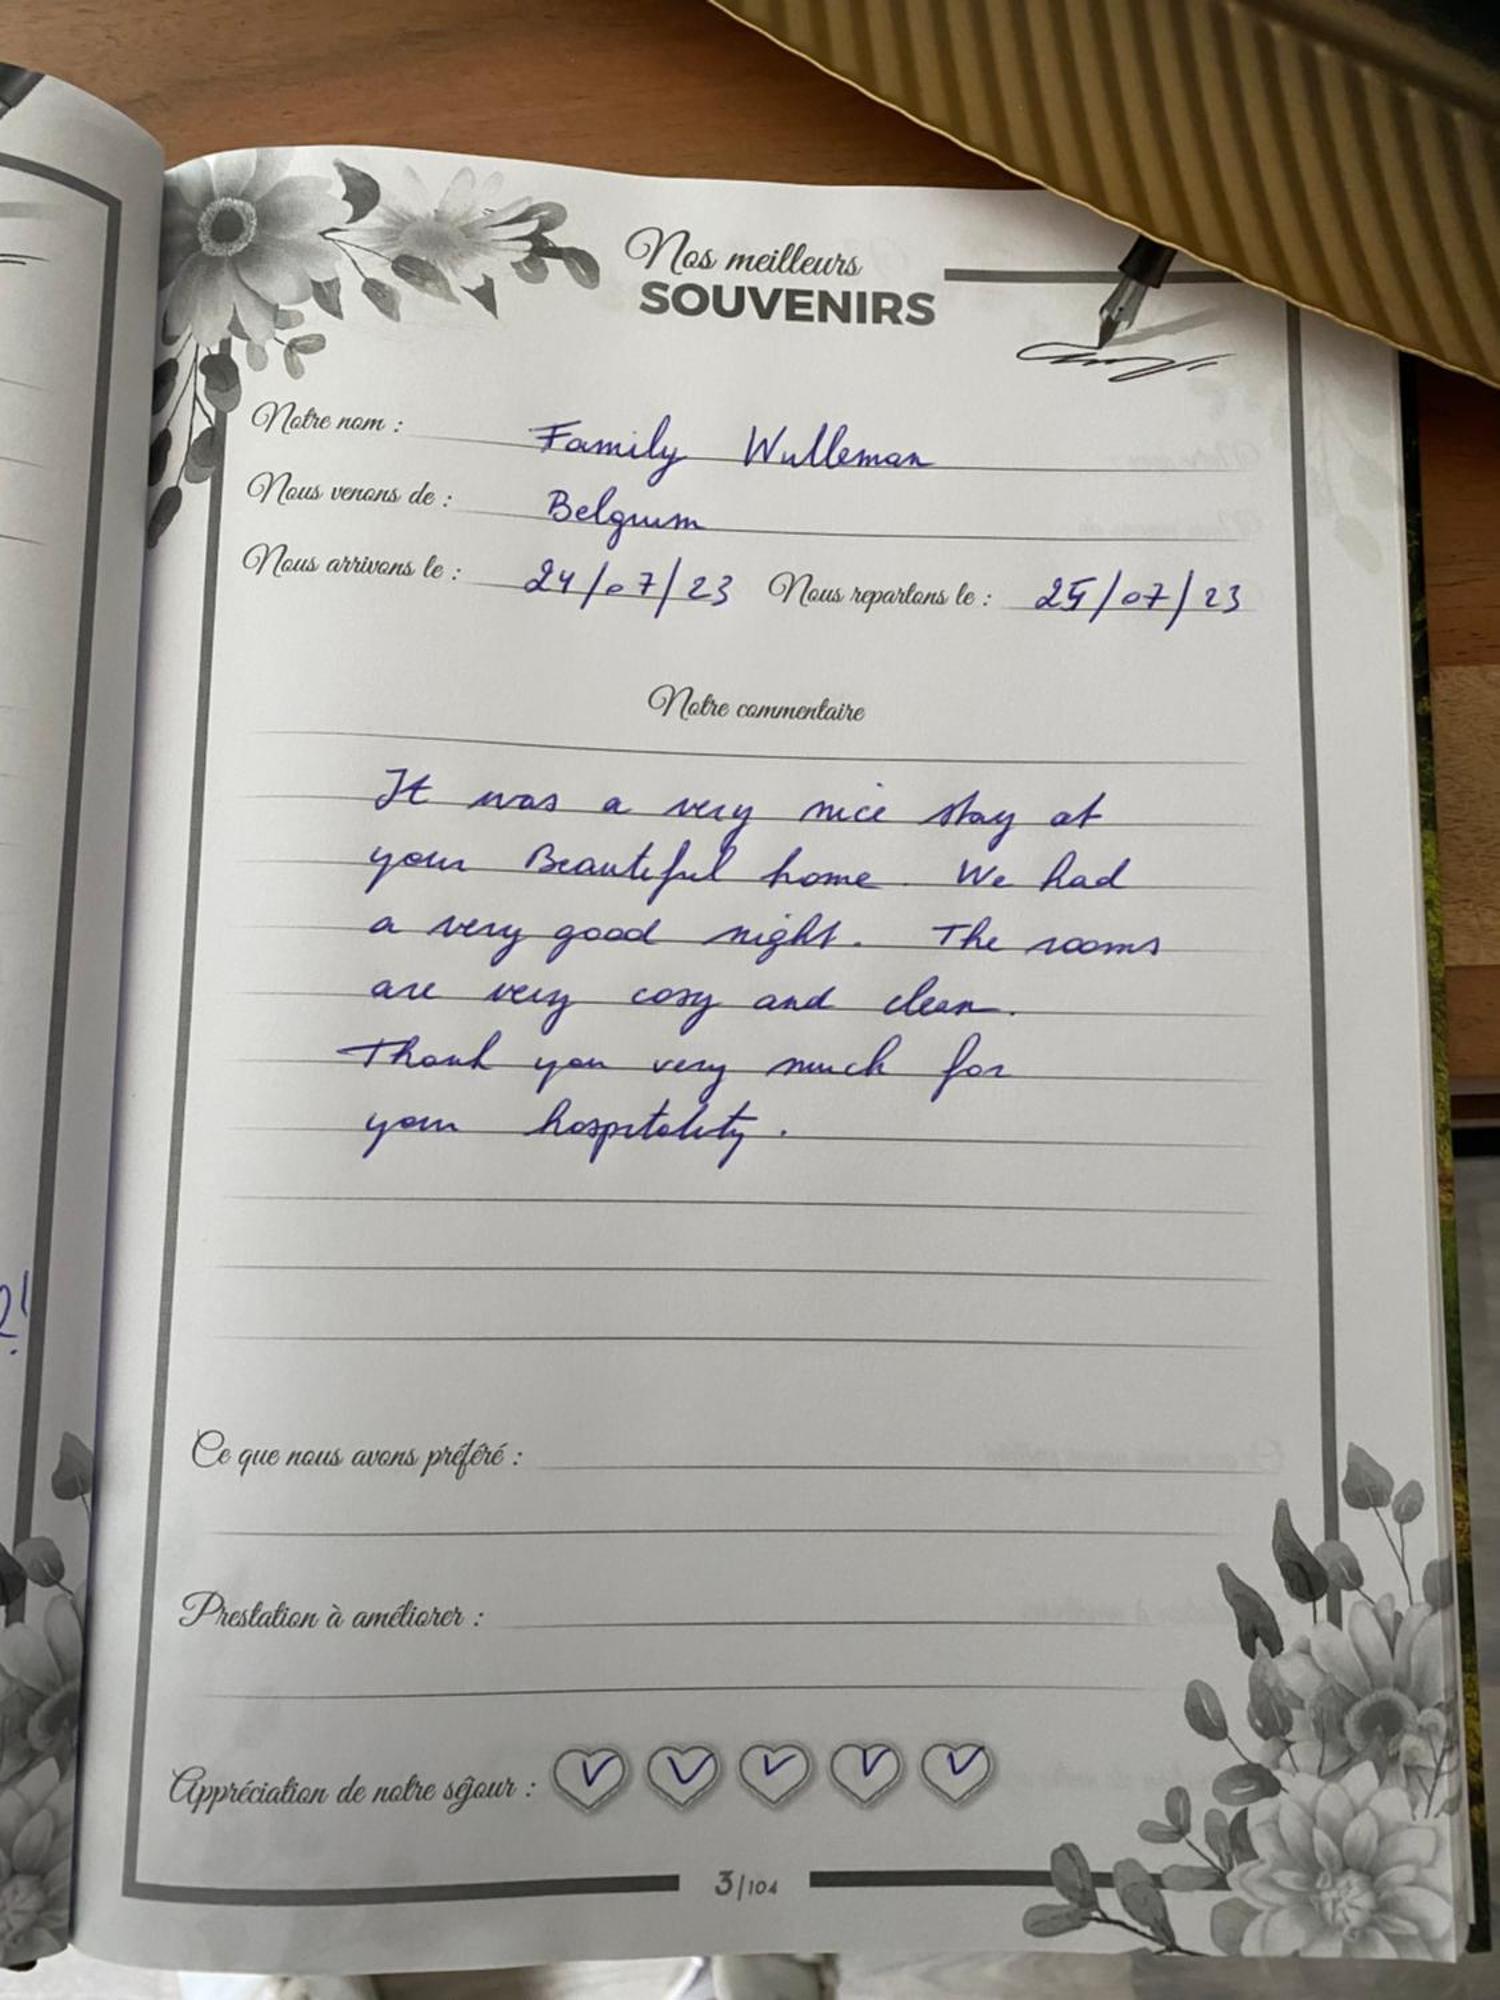 Nos meilleurs
SOUVENIRS
Notre nom : Family Wulleman
Nous venons de : Belgium
Nous arrivons le : 24/07/23 Nous repartons le : 25/07/23
Notre commentaire
It was a very nice stay at
your Beautiful home. We had
a very good night. The rooms
are very cosy and clean.
Thank you very much for
your hospitality.
Ce que nous avons préféré :
Prestation à améliorer :
Appréciation de notre séjour :
3/104